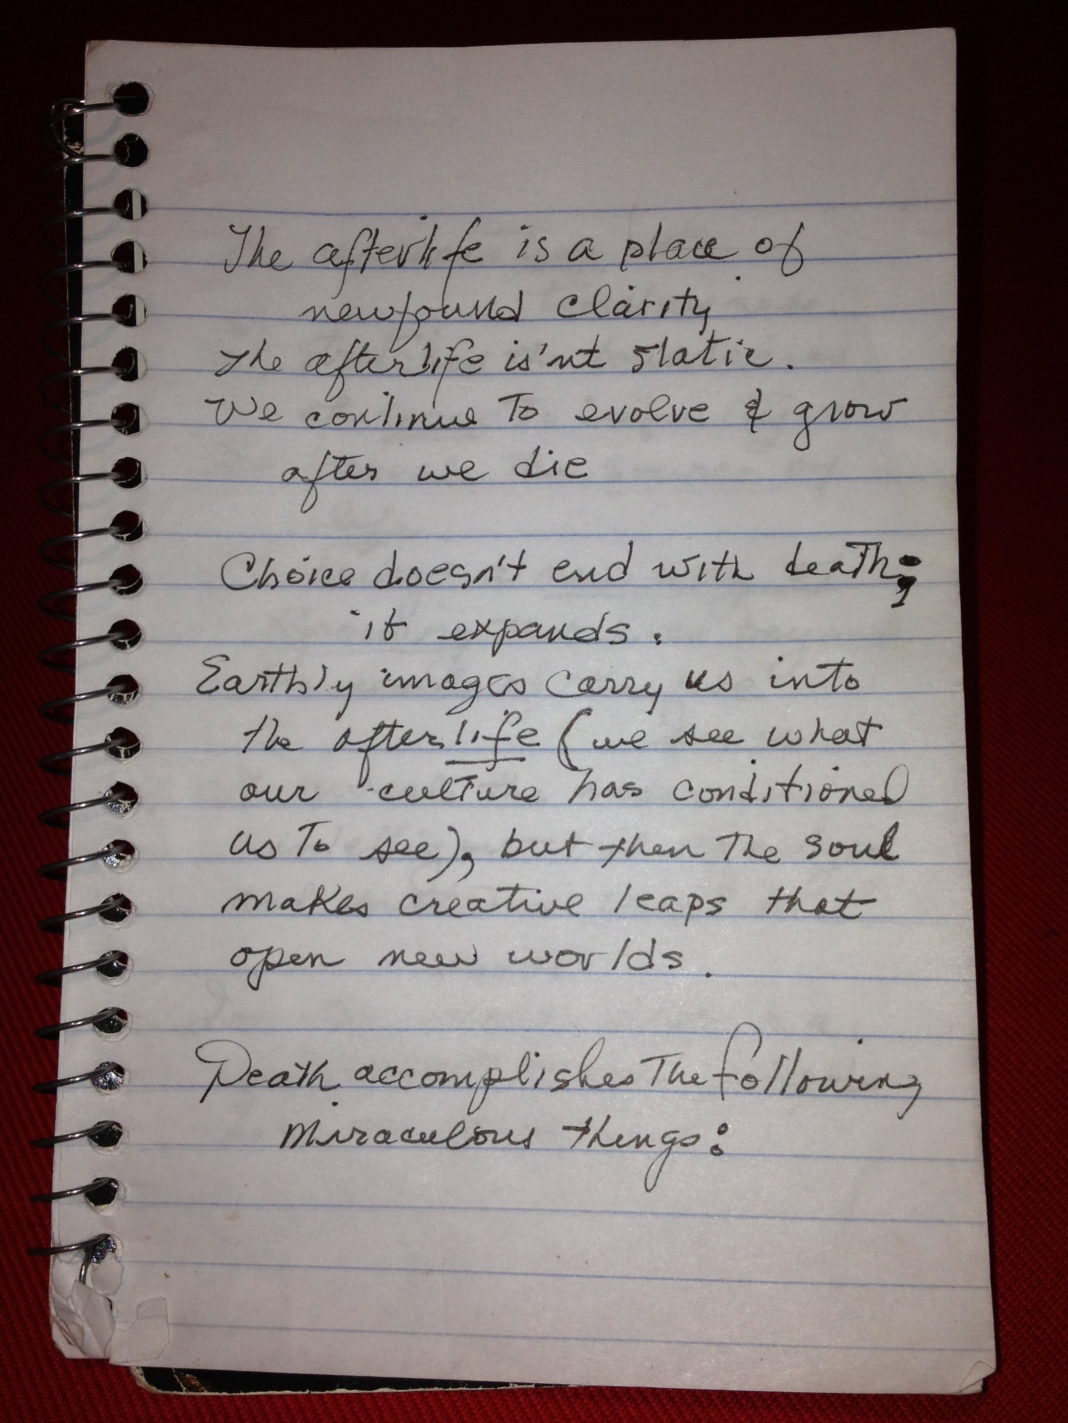 The afterlife is a place of
newfound clarity
The afterlife is'nt static.
We continue To evolve & grow
after we die
Choice doesn't end with death;
it expands.
Earthly images carry us into
the afterlife (we see what
our culture has conditioned
us To see), but then The soul
makes creative leaps that
open new worlds.
Death accomplishes The following
miraculous things: